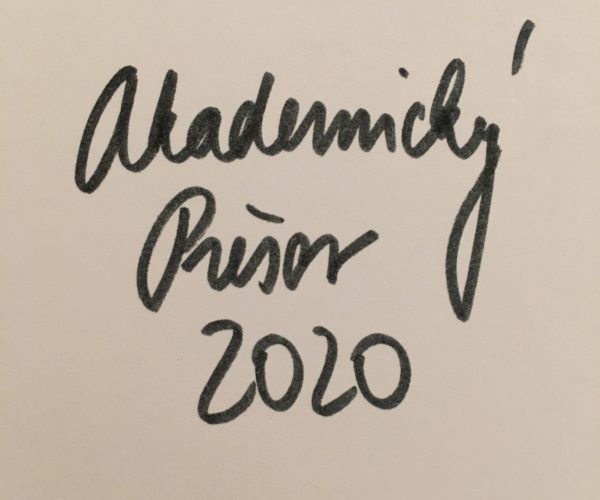 Akademický
Prešov
2020